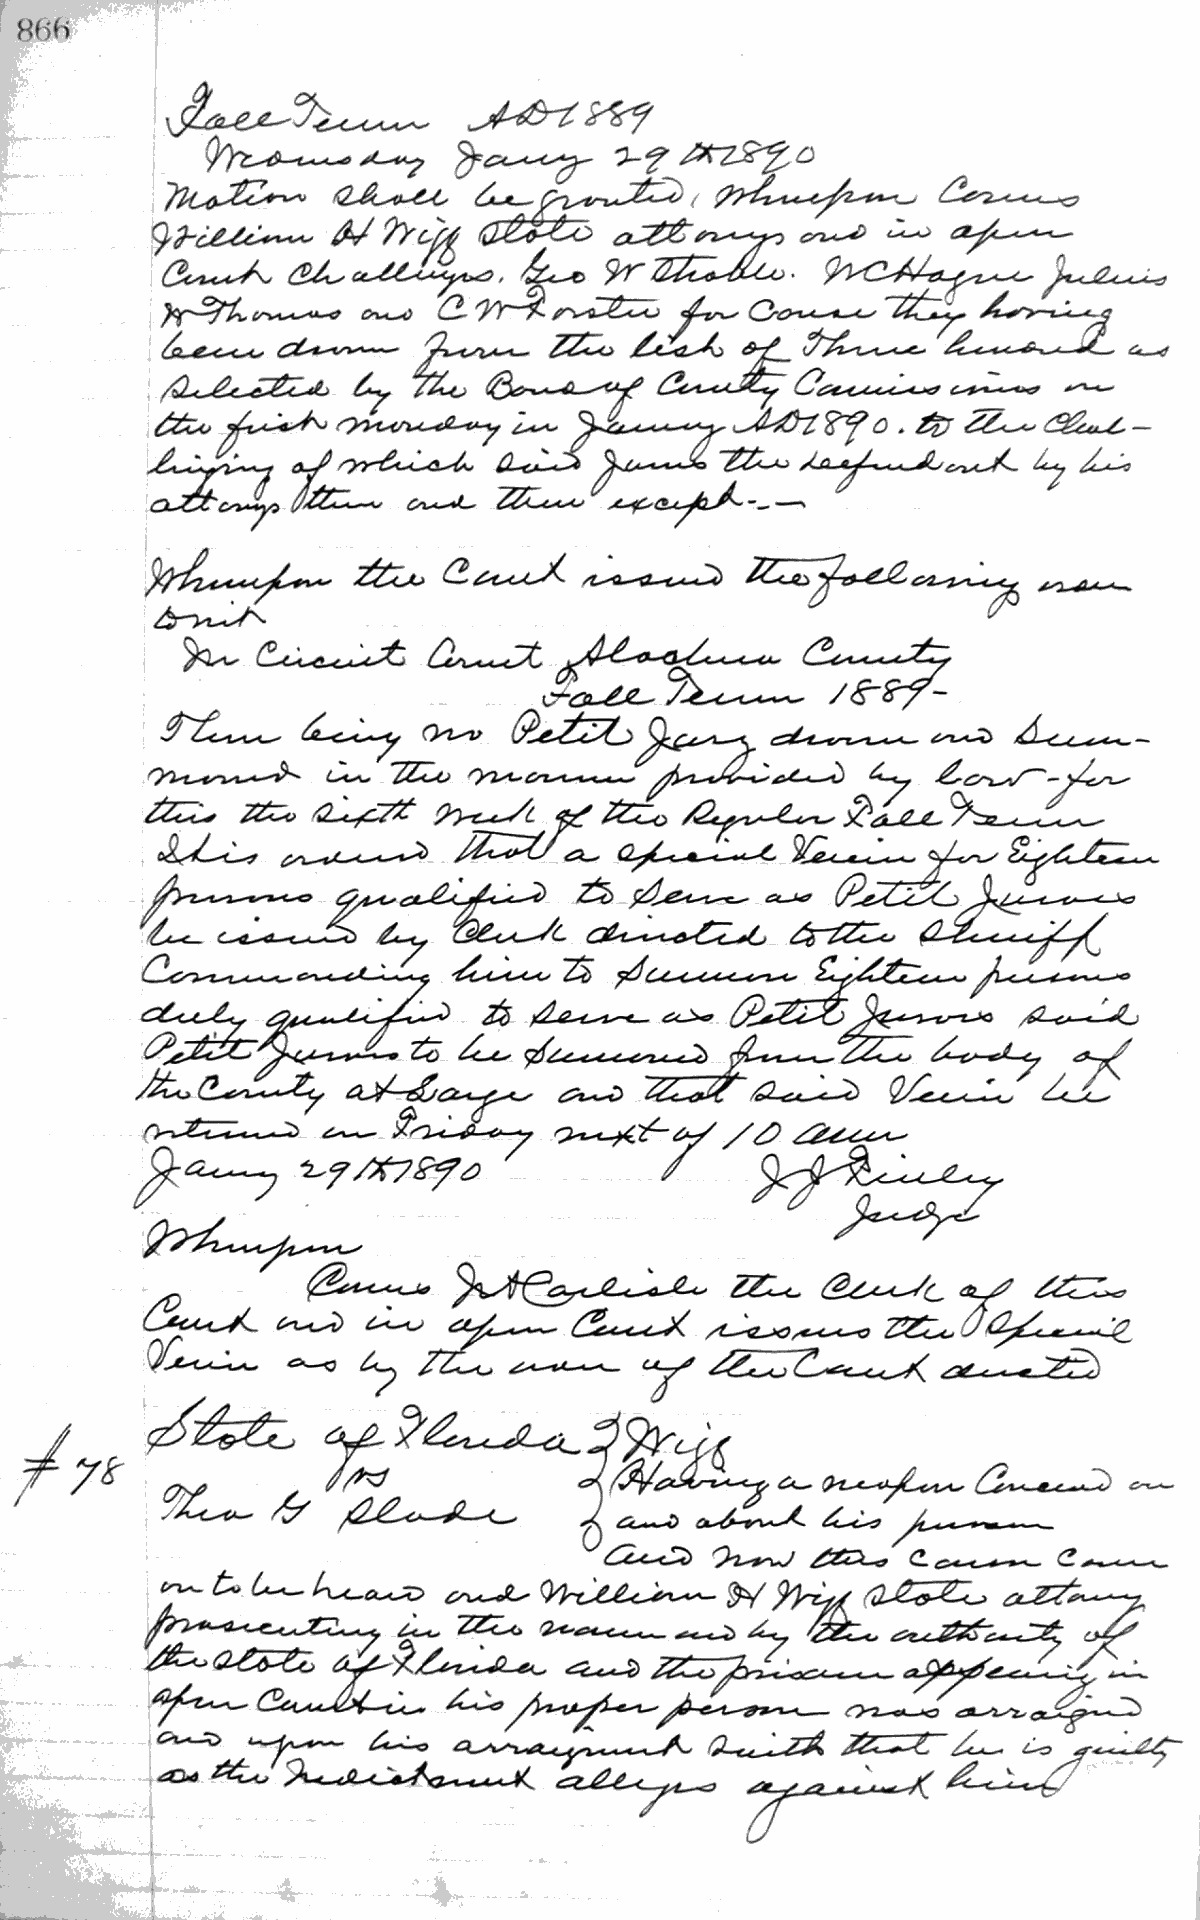 866
Fall Term AD 1889
Wednesday Jany 29th 1890
Motion shall be granted, Whereupon Comes
William H Wigg State attorney and in open
Court Challenges. Geo W Strobl. W C Hague Julius
H Thomas and C W Forster for Cause they having
been drawn from the list of Three hundred as
Selected by the Board of County Commissioners on
the first monday in January AD 1890. to the Chal-
linging of which said James the defendant by his
attorneys then and there except-.—
Whereupon the Court issued the following order
to wit
In Circuit Court Alachua County
Fall Term 1889-
There being no Petit Jury drawn and Sum-
moned in the manner provided by law - for
this the Sixth Week of the Regular Fall Term
It is ordered that a special Venire for Eighteen
persons qualified to Serve as Petit Jurors
be issued by Clerk directed to the Sheriff
Commanding him to Summon Eighteen persons
duly qualified to Serve as Petit Jurors said
Petit Jurors to be Summoned from the body of
the County at Large and that said Venire be
returned on Friday next at 10 am
Jany 29th 1890 J J Finley
Judge
Whereupon
Comes J A Carlisle the Clerk of this
Court and in open Court issues the Special
Venire as by the order of the Court directed
State of Florida } Wigg
# 78
vs } Having a weapon Concealed on
Theo G Slade } and about his person
And now this cause came
on to be heard and William H Wigg State attorney
prosecuting in the name and by the authority of
the State of Florida and the prisoner appearing in
open Court in his proper person was arraigned
and upon his arraignment saith that he is guilty
as the Indictment alleges against him